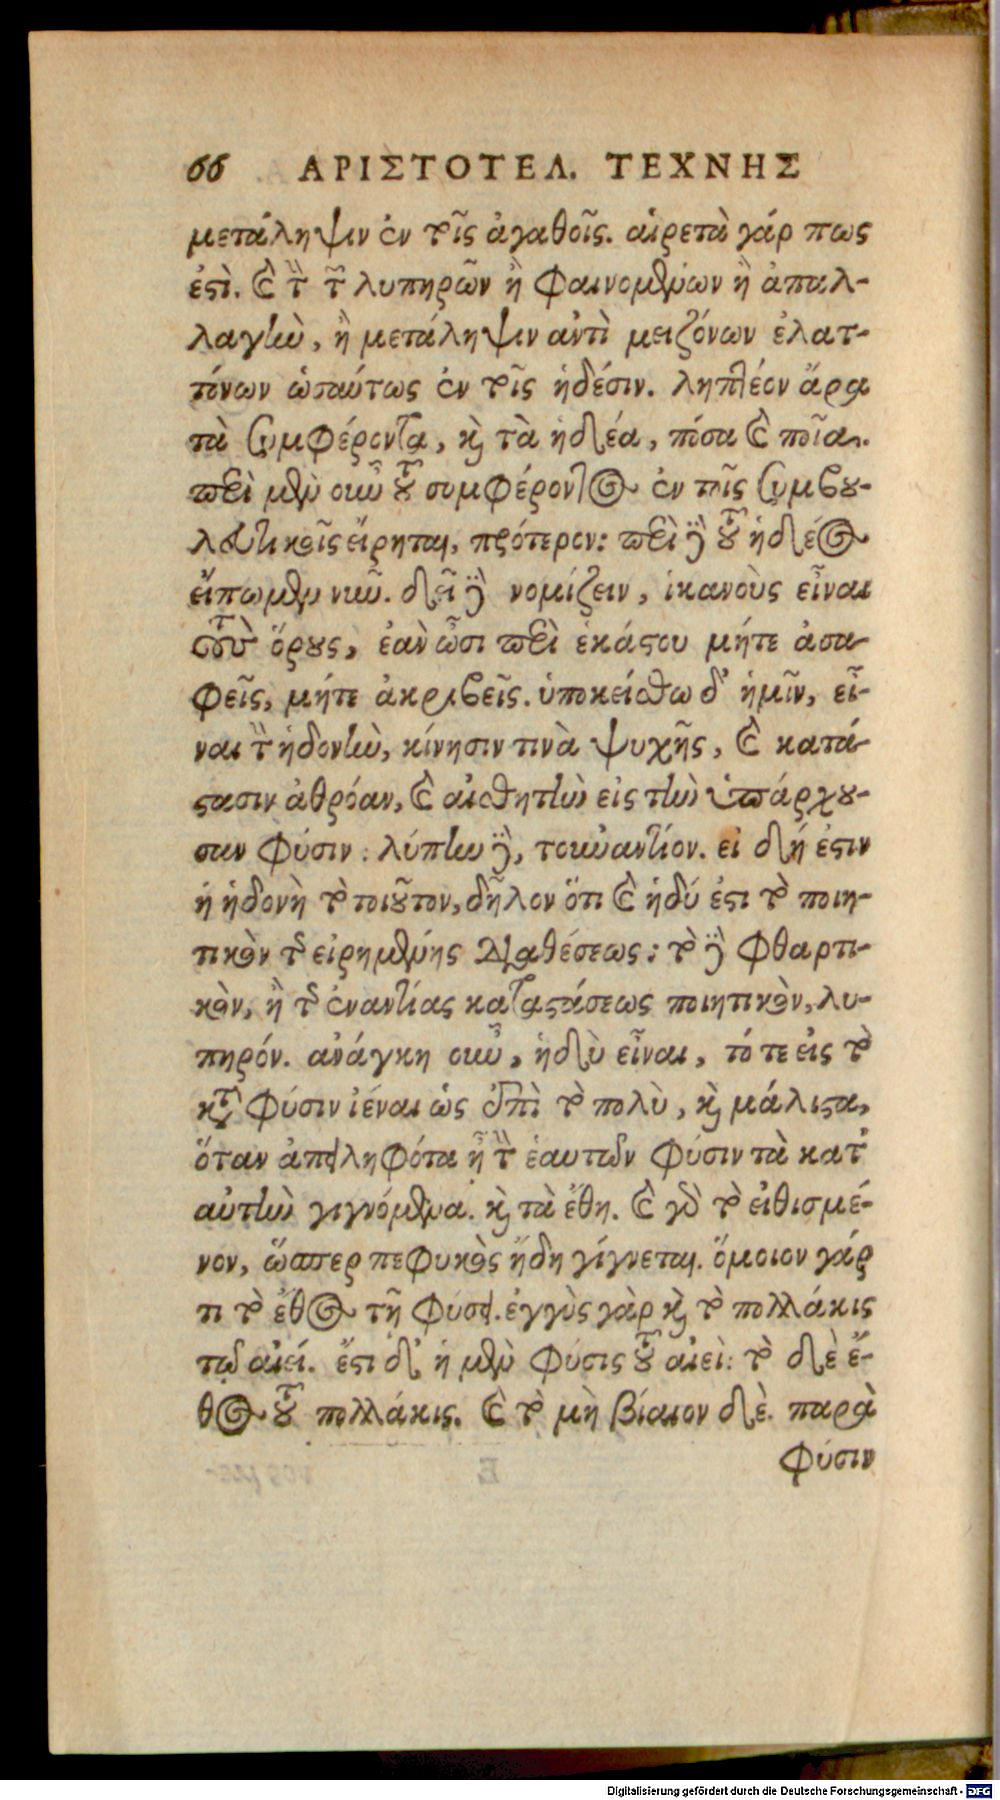 66 ΑΡΙΣΤΟΤΕΛ. ΤΕΧΝΗΣ
μετάληψιν ἐν τοῖς ἀγαθοῖς. αἱρετὰ γάρ πως
ἐστί. καὶ τὴν τῶν λυπηρῶν ἢ φαινομένων ἢ ἀπαλ-
λαγὴν, ἢ μετάληψιν ἀντὶ μειζόνων ἐλατ-
τόνων ὡσαύτως ἐν τοῖς ἡδέσιν. ληπτέον ἄρα
τὰ συμφέροντα, καὶ τὰ ἡδέα, πόσα καὶ ποῖα.
περὶ μὲν οὖν τοῦ συμφέροντος ἐν τοῖς συμβου-
λευτικοῖς εἴρηται, πρότερον: περὶ δὲ τοῦ ἡδέος
εἴπωμεν νῦν. δεῖ δὲ νομίζειν, ἱκανοὺς εἶναι
τοὺς ὅρους, ἐὰν ὦσι περὶ ἑκάστου μήτε ἀσα-
φεῖς, μήτε ἀκριβεῖς. ὑποκείσθω δ' ἡμῖν, εἶ-
ναι τὴν ἡδονὴν, κίνησιν τινὰ ψυχῆς, καὶ κατά-
στασιν ἀθρόαν, καὶ αἰσθητὴν εἰς τὴν ὑπάρχου-
σαν φύσιν: λύπην δὲ, τοὐναντίον. εἰ δή ἐστιν
ἡ ἡδονὴ τὸ τοιοῦτον, δῆλον ὅτι καὶ ἡδύ ἐστι τὸ ποιη-
τικὸν τῆς εἰρημένης διαθέσεως: τὸ δὲ φθαρτι-
κὸν, ἢ τῆς ἐναντίας καταστάσεως ποιητικὸν, λυ-
πηρόν. ἀνάγκη οὖν, ἡδὺ εἶναι, τό τε εἰς τὸ
κατὰ φύσιν ἰέναι ὡς ἐπὶ τὸ πολὺ, καὶ μάλιστα,
ὅταν ἀπειληφότα ᾖ τὴν ἑαυτῶν φύσιν τὰ κατ'
αὐτὴν γιγνόμενα. καὶ τὰ ἔθη. καὶ γὰρ τὸ εἰθισμέ-
νον, ὥσπερ πεφυκὸς ἤδη γίγνεται. ὅμοιον γάρ
τι τὸ ἔθος τῇ φύσει. ἐγγὺς γὰρ καὶ τὸ πολλάκις
τῷ αἰεί. ἔστι δ' ἡ μὲν φύσις τοῦ αἰεὶ: τὸ δὲ ἔ-
θος τοῦ πολλάκις. καὶ τὸ μὴ βίαιον δέ. παρὰ
φύσιν
Digitalisierung gefördert durch die Deutsche Forschungsgemeinschaft - DFG